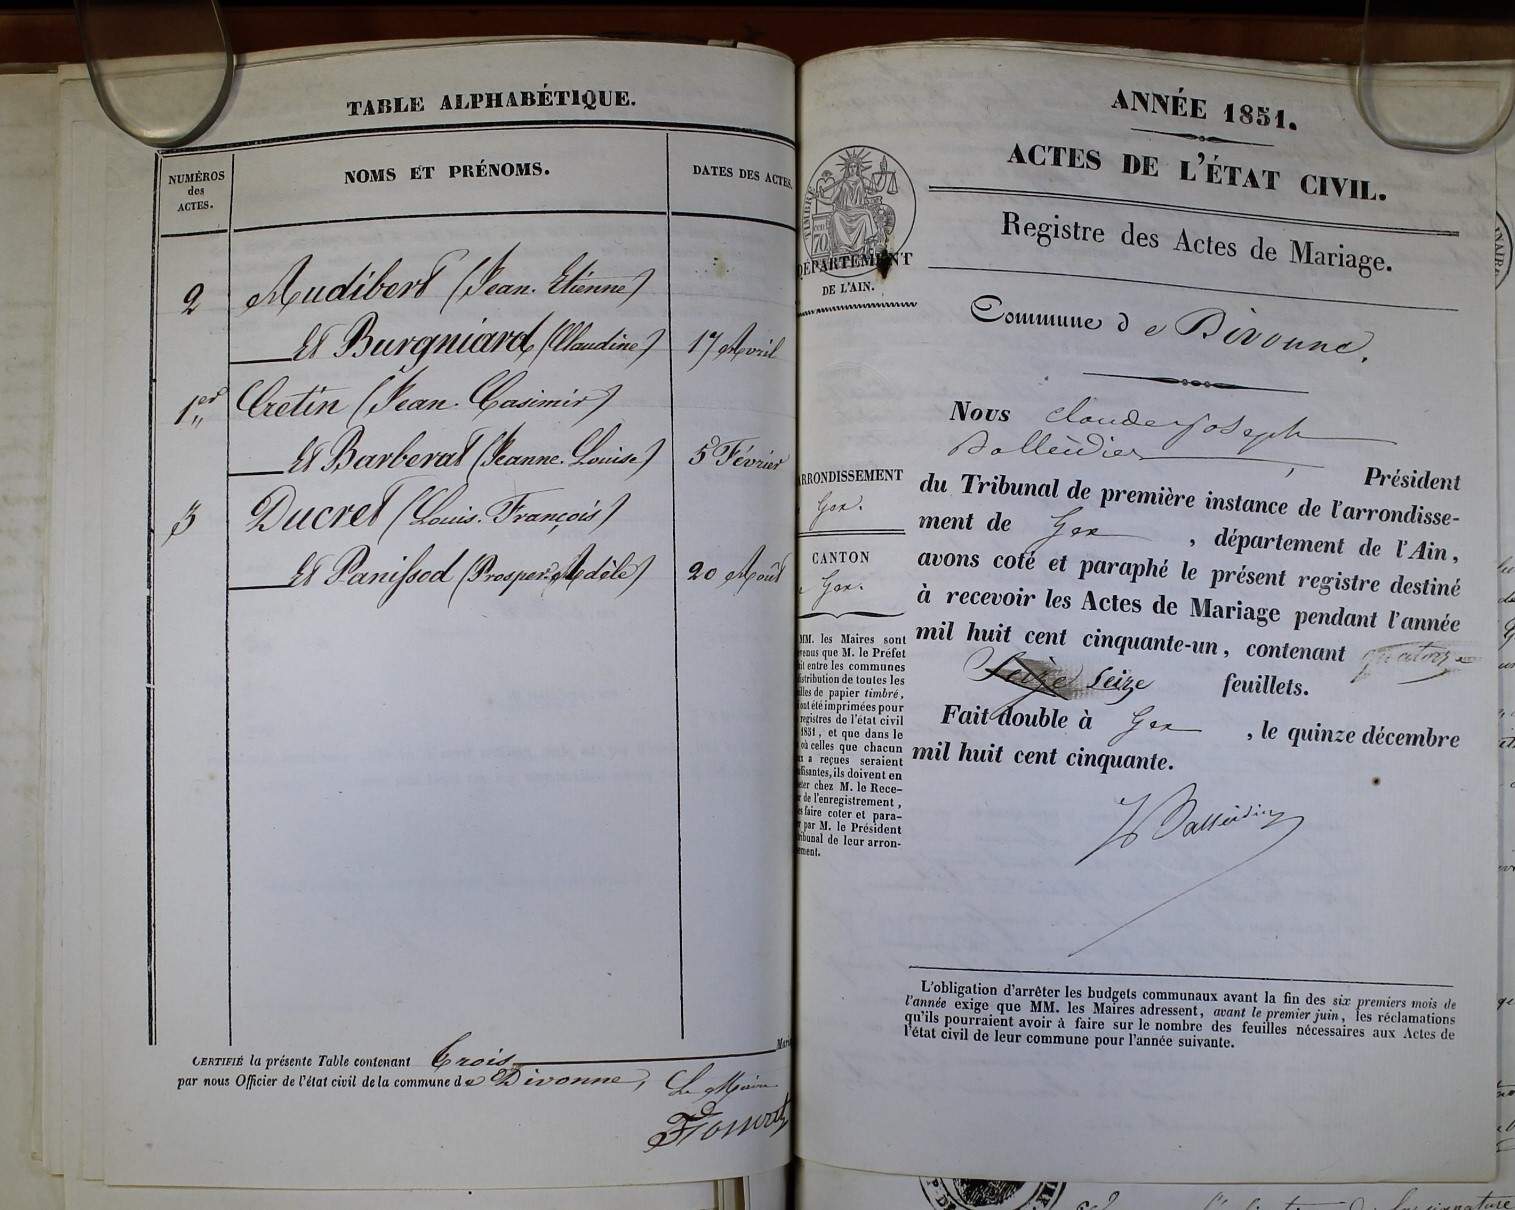 TABLE ALPHABÉTIQUE.
NUMÉROS
des
ACTES.
NOMS ET PRÉNOMS.
DATES DES ACTES.
2 Audibert (Jean. Etienne)
Et Burgniard (Claudine) 17 Avril
1er Cretin (Jean. Casimir)
Et Barberat (Jeanne. Louise) 5 Février
3 Ducret (Louis. François)
Et Panissod (Prospere. Adèle) 20 Août
CERTIFIÉ la présente Table contenant Trois
par nous Officier de l'état civil de la commune de Divonne, Le Maire
ANNÉE 1851.
ACTES DE L'ÉTAT CIVIL.
Registre des Actes de Mariage.
TIMBRE
70
DÉPARTEMENT
DE L'AIN.
Commune de Divonne.
ARRONDISSEMENT
Gex.
CANTON
Gex.
MM. les Maires sont
venus que M. le Préfet
ait entre les communes
distribution de toutes les
illes de papier timbré,
ont été imprimées pour
registres de l'état civil
1851, et que dans le
où celles que chacun
a reçues seraient
fisantes, ils doivent en
eter chez M. le Rece-
r de l'enregistrement,
es faire coter et para-
r par M. le Président
ribunal de leur arron-
ement.
Nous Claude Joseph
Balleidier, Président
du Tribunal de première instance de l'arrondisse-
ment de Gex, département de l'Ain,
avons coté et paraphé le présent registre destiné
à recevoir les Actes de Mariage pendant l'année
mil huit cent cinquante-un, contenant quatorze
Seize Seize feuillets.
Fait double à Gex, le quinze décembre
mil huit cent cinquante.
Balleidier
L'obligation d'arrêter les budgets communaux avant la fin des six premiers mois de
l'année exige que MM. les Maires adressent, avant le premier juin, les réclamations
qu'ils pourraient avoir à faire sur le nombre des feuilles nécessaires aux Actes de
l'état civil de leur commune pour l'année suivante.